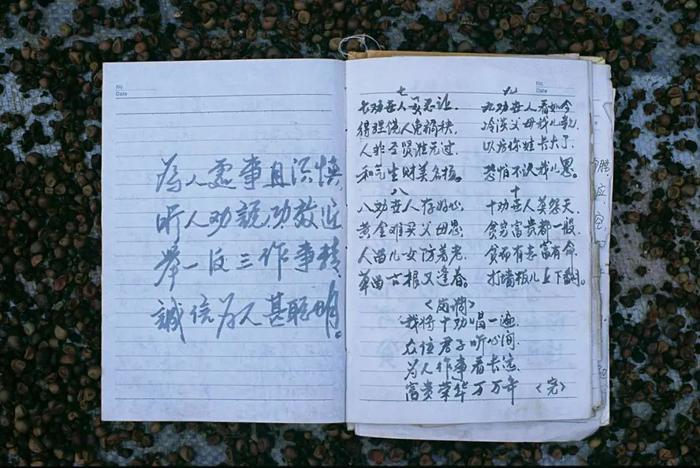 No.
Date
為人處事且沉慎
听人劝説功效近
举一反三作事精
誠信为人甚聪明。
No.
Date
七
七劝世人要忍让.
得理饶人免祸
人非圣贤谁无过.
和气生财美名播。
八
八劝世人存好心.
黄金难买父母恩.
人留儿女防着老.
草留古根又逢春。
九
九劝世人看如今
冷淡父母儿
以后你娃长大了.
恐怕不认儿恩。
十
十劝世人莫怨天.
贫穷富贵都一般.
贫而有志富有命.
打墙板儿上下翻。
我将十劝唱一遍.
在位君子听心间.
为人作事看长远.
富贵荣华万万年 <完>